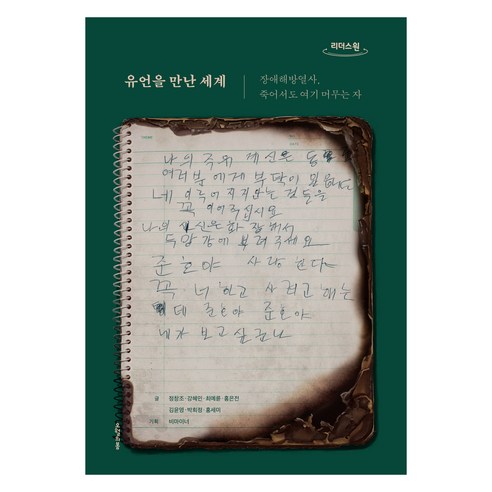 리더스원
유언을 만난 세계
장애해방열사,
죽어서도 여기 머무는 자
나의 주위 계신은
여러분에게 부탁이
네 이루어지지않는 것들을
꼭 이어주십시요
나의 시신은 화장해서
두만강에 뿌려주세요
준호야 사랑한다
꼭 너하고 사려고 했는
데 준호야 준호야
네가 보고 싶구나
글 정창조·강혜민·최예륜·홍은전
김윤영·박희정·홍세미
기획 비마이너